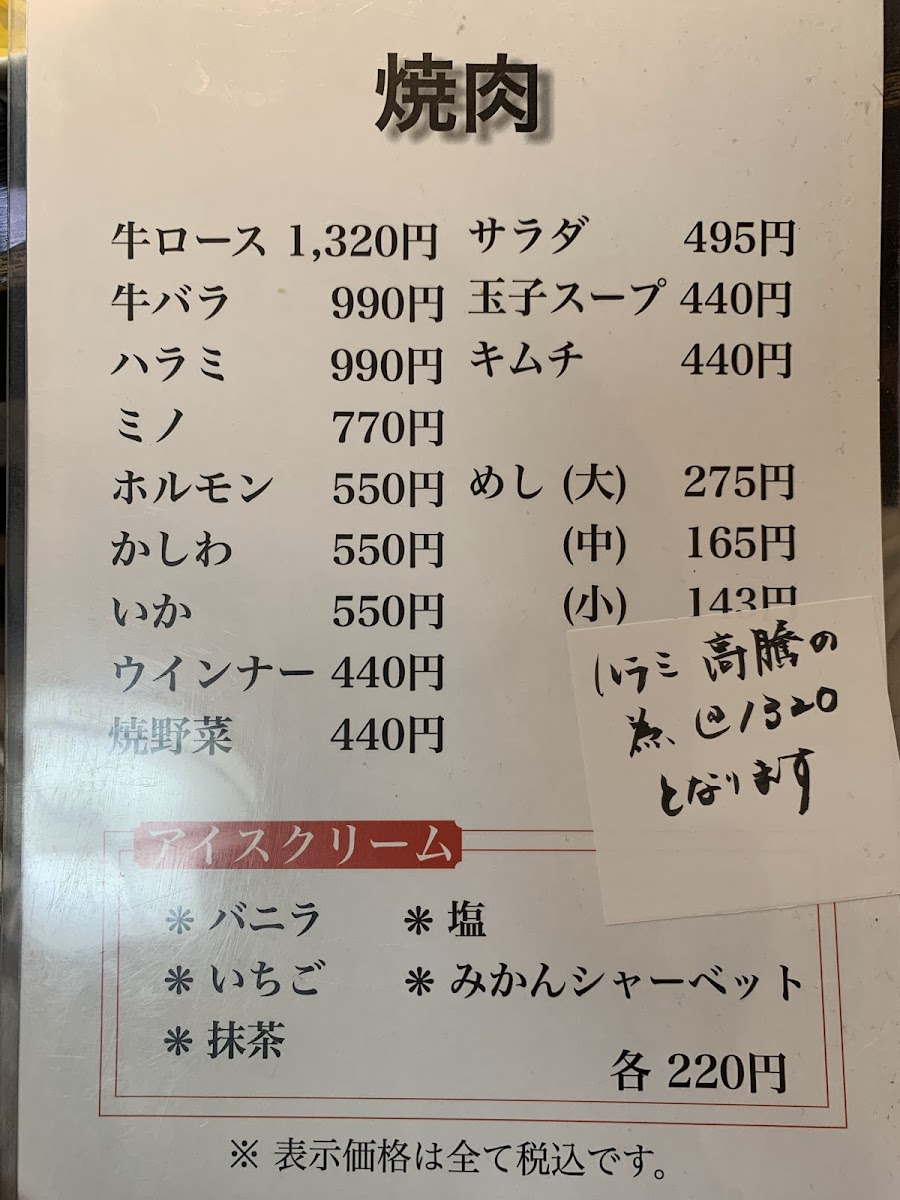 焼肉
牛ロース 1,320円
牛バラ 990円
ハラミ 990円
ミノ 770円
ホルモン 550円
かしわ 550円
いか 550円
ウインナー 440円
焼野菜 440円
サラダ 495円
玉子スープ 440円
キムチ 440円
めし (大) 275円
(中) 165円
(小) 143円
ハラミ 高騰の
為 @1320
となります
アイスクリーム
＊ バニラ
＊ いちご
＊ 抹茶
＊ 塩
＊ みかんシャーベット
各 220円
※ 表示価格は全て税込です。